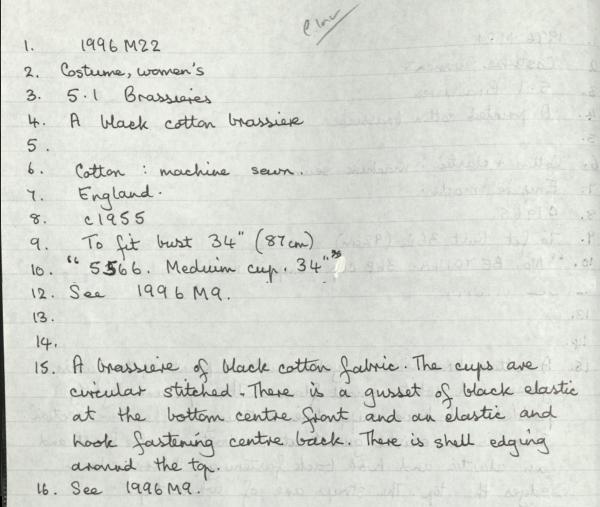 1. 1996 M22
2. Costume, women's
3. 5.1 Brassieres
4. A black cotton brassiere
5.
6. Cotton : machine sewn.
7. England.
8. c1955
9. To fit bust 34" (87cm)
10. "5566. Medium cup. 34""
12. See 1996 M9.
13.
14.
15. A brassiere of black cotton fabric. The cups are
circular stitched. There is a gusset of black elastic
at the bottom centre front and an elastic and
hook fastening centre back. There is shell edging
around the top.
16. See 1996 M9.